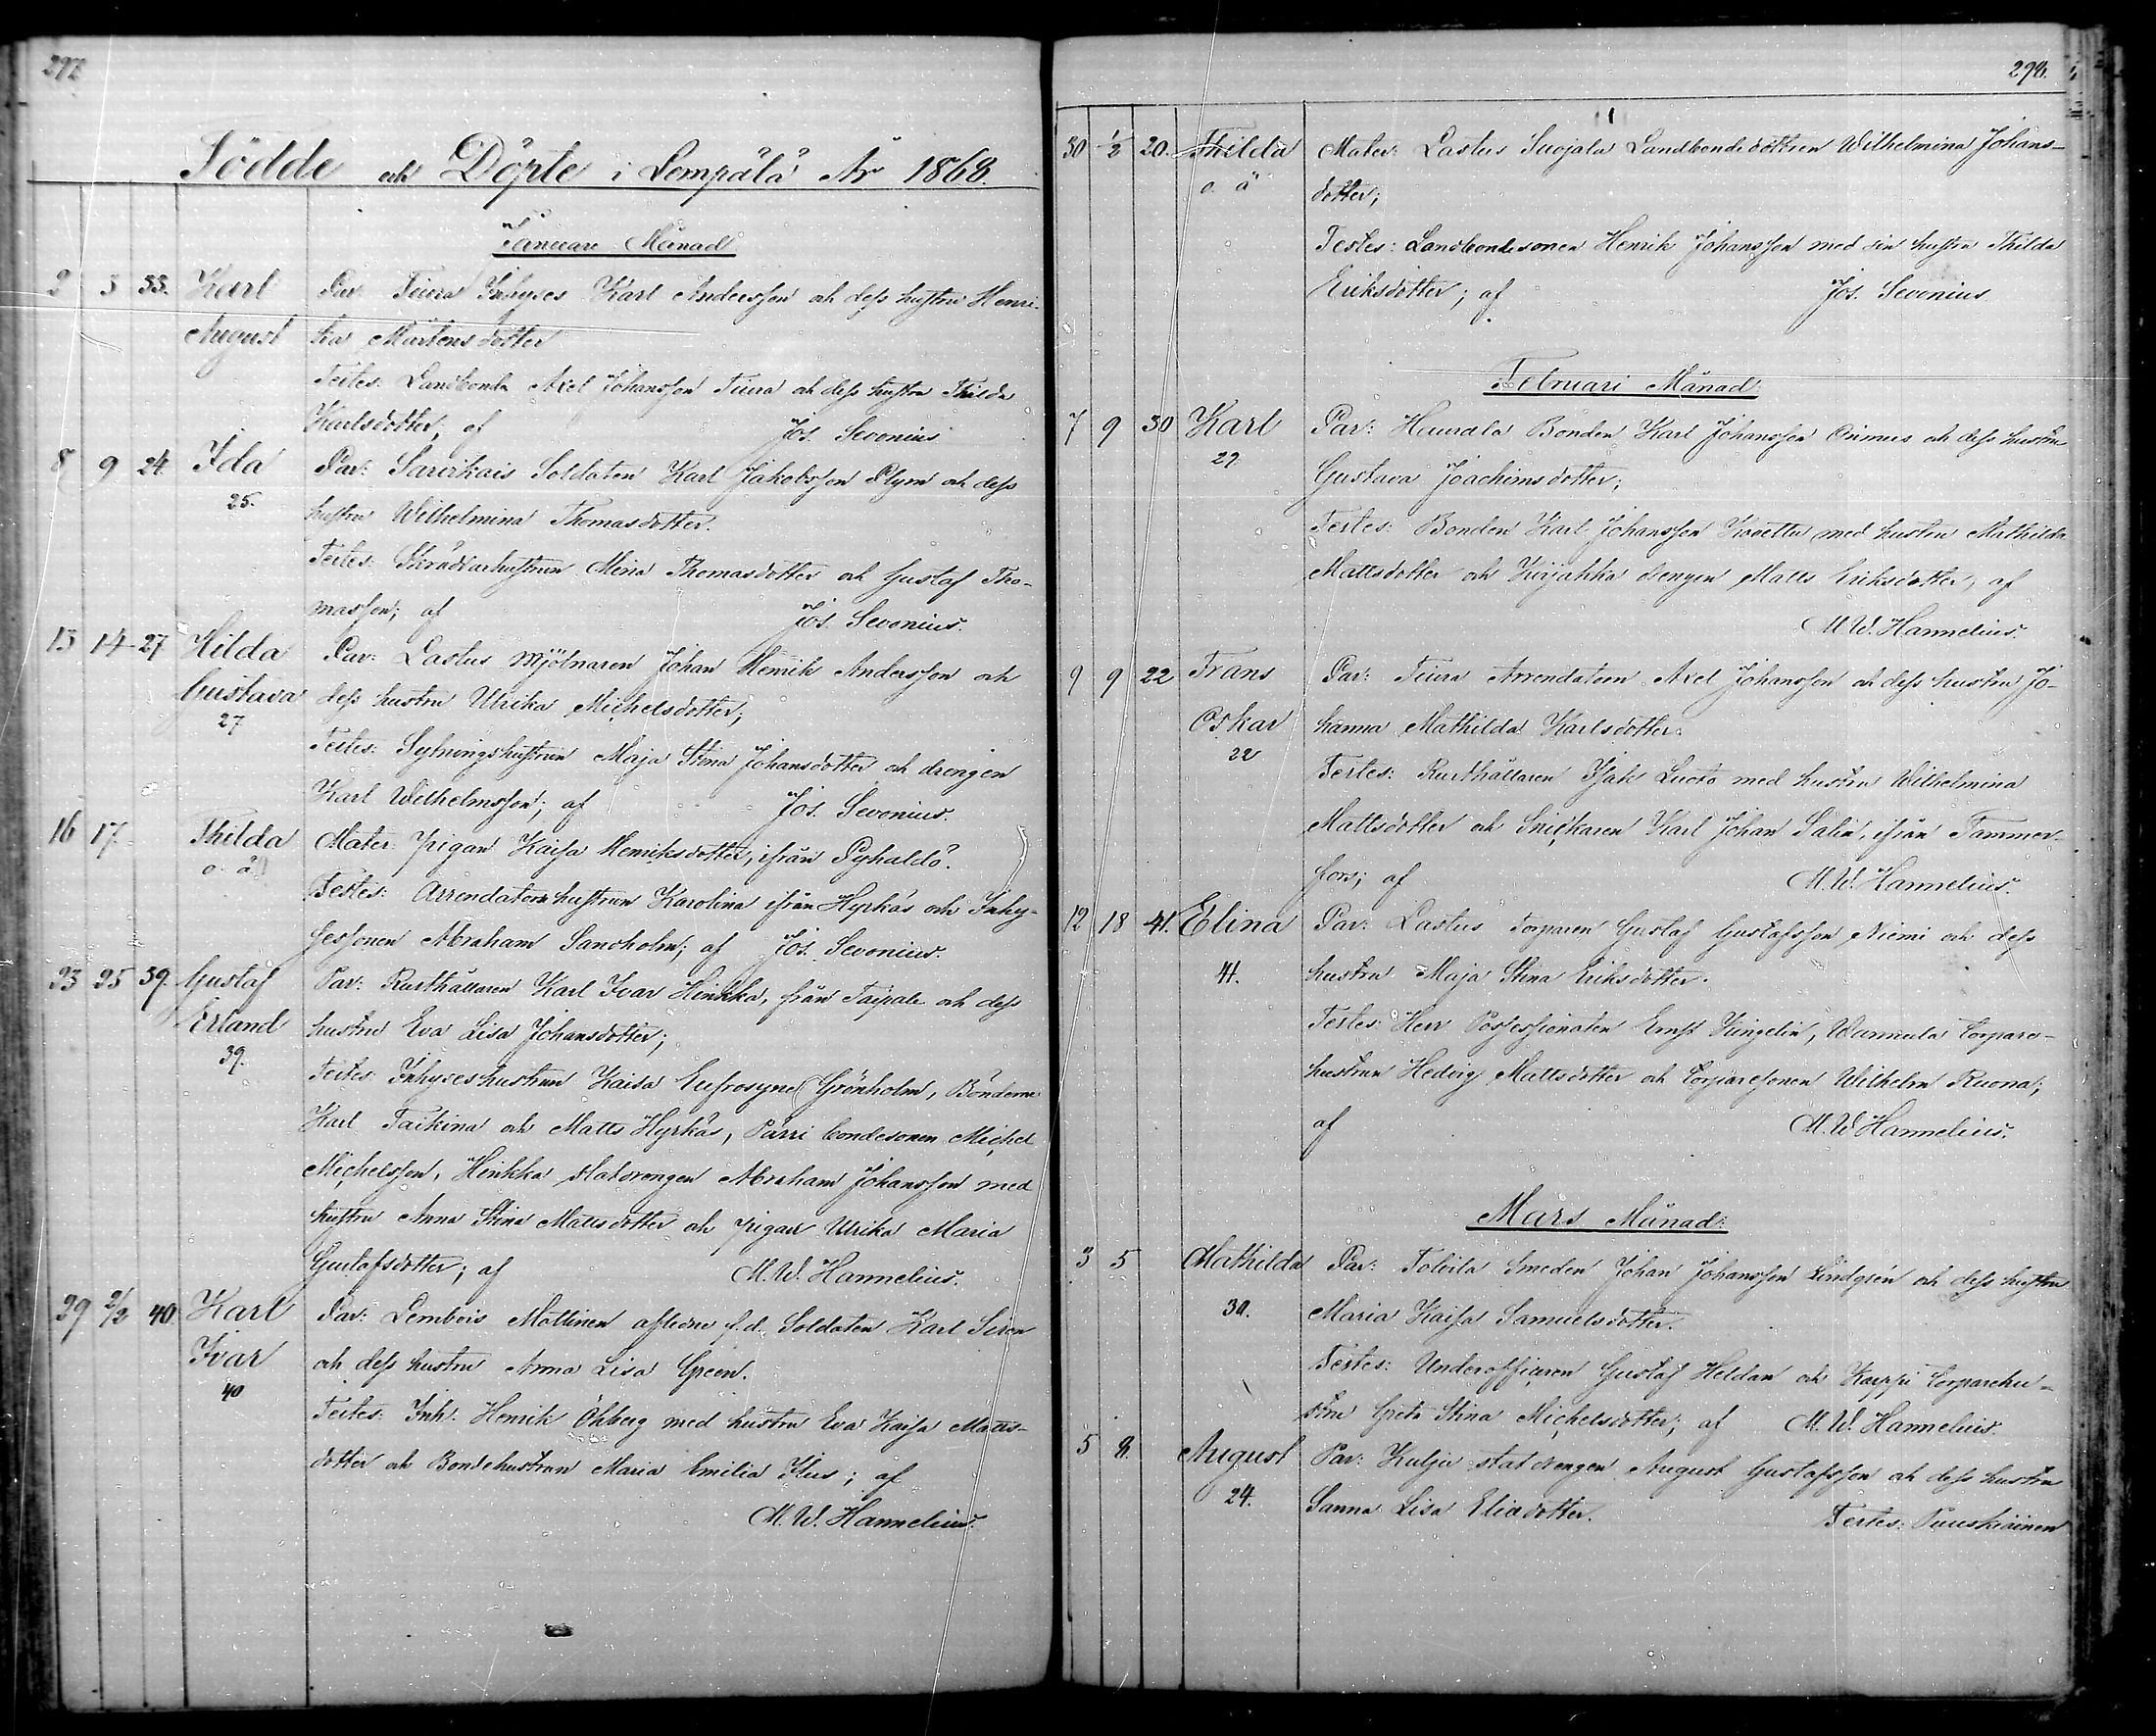 297
Födde och Döpte i Lempälä År 1868.
Januari Månad
2 3 33. Karl Par: Tiura Inhyses Karl Andersson och dess hustru Henri-
August ka Mårtensdotter
Testes: Landbonde Axel Johansson Tiura och dess hustru Thilda
Karlsdotter, af Jos. Sevonius
8 9 24 Ida Par: Sarvikais Soldaten Karl Jakobsson Plym och dess
25. hustru Wilhelmina Thomasdotter.
Testes: Skräddarhustrun Mina Thomasdotter och Gustaf Tho-
masson; af Jos. Sevonius.
13 14 27 Hilda Par: Lastus Mjölnaren Johan Henrik Andersson och
Gustava dess hustru Ulrika Michelsdotter;
27
Testes: Sytningshustrun Maja Stina Johansdotter och drengen
Karl Wilhelmsson; af Jos. Sevonius.
16 17. Thilda Mater: Pigan Kaisa Henriksdotter, ifrån Pyhäldö.
o. ä Testes: Arrendators hustrun Karolina ifrån Hyrkäs och Inhy-
sessonen Abraham Sandholm; af Jos. Sevonius.
23 25 39. Gustaf Par: Rusthållaren Karl Ivar Hinkka, från Taipale och dess
Erland hustru Eva Lisa Johansdotter;
39.
Testes: Inhyseshustrun Kaisa Eufrosyne Grönholm, Bönderne
Karl Taikina och Matts Hyrkäs, Pärri bondesonen Michel
Michelsson, Hinkka statdrengen Abraham Johansson med
hustru Anna Stina Mattsdotter och pigan Ulrika Maria
Gustafsdotter; af M. W. Hannelius.
29 2/2 40. Karl Par: Lembois Mottinen afledne f.d. Soldaten Karl Siren
Ivar och dess hustru Anna Lisa Green.
40
Testes: Inh: Henrik Öhberg med hustru Eva Kaisa Matts-
dotter och Bondehustrun Maria Emilia Ilus; af
M. W. Hannelius.
298.
30 1/2 20. Thilda Mater: Lastus Suojala Landbondedottren Wilhelmina Johans-
o. ä dotter;
Testes: Landbondesonen Henrik Johansson med sin hustru Thilda
Eriksdotter; af Jos. Sevonius
Februari Månad
7 9 30 Karl Par: Haurala Bonden Karl Johansson Oinnus och dess hustru
29 Gustava Joachimsdotter;
Testes: Bonden Karl Johansson med hustru Mathilda
Mattsdotter och drengen Matts Eriksdotter, af
M. W. Hannelius.
9 9 22 Frans Par: Tiura Arrendatorn Axel Johansson och dess hustru Jo-
Oskar hanna Mathilda Karlsdotter.
22
Testes: Rusthållaren Isak Luoto med hustru Wilhelmina
Mattsdotter och Snickaren Karl Johan Salin, ifrån Tammer-
fors; af M. W. Hannelius.
12 18 41. Elina Par: Lastus Torparen Gustaf Gustafsson Niemi och dess
41. hustru Maja Stina Eriksdotter.
Testes: Herr Possessionaten Ernst Jungelin, Wannula torpare-
hustrun Hedvig Mattsdotter och torparesonen Wilhelm Ruona;
af M. W. Hannelius.
Mars Månad:
3 5 Mathilda Par: Toloila Smeden Johan Johansson Lindgrén och dess hustru
30. Maria Kaisa Samuelsdotter.
Testes: Underofficeren Gustaf Heldan och Kappi torparehu-
stru Greta Stina Michelsdotter; af M. W. Hannelius.
5 8. August Par: Kulju statdrengen August Gustafsson och dess hustru
24. Sanna Lisa Eliadotter. Testes: Puuskiainen